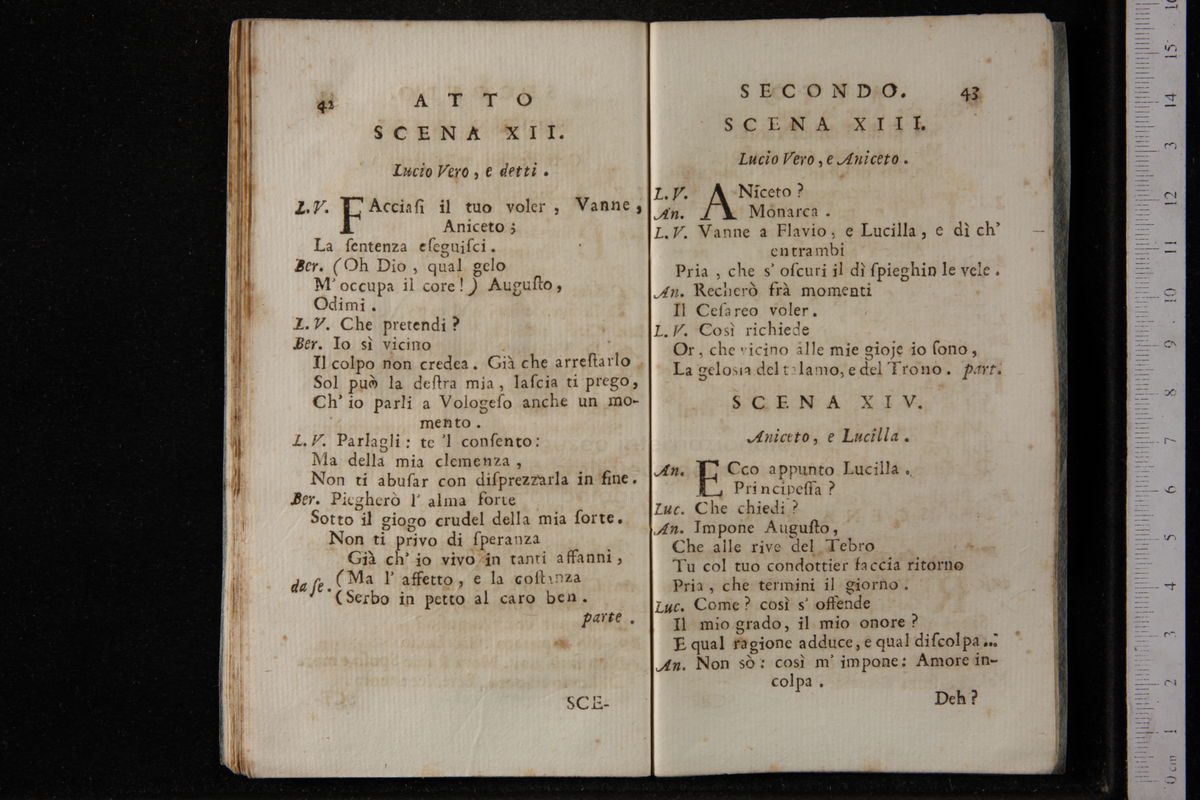 42 ATTO
SCENA XII.
Lucio Vero, e detti.
L.V. FAcciaſi il tuo voler, Vanne,
Aniceto;
La ſentenza eſeguiſci.
Ber. (Oh Dio, qual gelo
M'occupa il core!) Auguſto,
Odimi.
L.V. Che pretendi?
Ber. Io sì vicino
Il colpo non credea. Già che arreſtarlo
Sol può la deſtra mia, laſcia ti prego,
Ch' io parli a Vologeſo anche un mo-
mento.
L.V. Parlagli: te 'l conſento:
Ma della mia clemenza,
Non ti abuſar con diſprezzarla in fine.
Ber. Piegherò l' alma forte
Sotto il giogo crudel della mia ſorte.
Non ti privo di ſperanza
Già ch' io vivo in tanti affanni,
da ſe. (Ma l' affetto, e la coſtanza
(Serbo in petto al caro ben.
parte.
SCE-
SECONDO. 43
SCENA XIII.
Lucio Vero, e Aniceto.
L.V. ANiceto?
An. Monarca.
L.V. Vanne a Flavio, e Lucilla, e dì ch'
entrambi
Pria, che s' oſcuri il dì ſpieghin le vele.
An. Recherò frà momenti
Il Ceſareo voler.
L.V. Così richiede
Or, che vicino alle mie gioje io ſono,
La gelosia del talamo, e del Trono. part.
SCENA XIV.
Aniceto, e Lucilla.
An. ECco appunto Lucilla.
Principeſſa?
Luc. Che chiedi?
An. Impone Auguſto,
Che alle rive del Tebro
Tu col tuo condottier faccia ritorno
Pria, che termini il giorno.
Luc. Come? così s' offende
Il mio grado, il mio onore?
E qual ragione adduce, e qual diſcolpa...
An. Non sò: così m' impone: Amore in-
colpa.
Deh?
0 cm 1 2 3 4 5 6 7 8 9 10 11 12 3 14 15 16